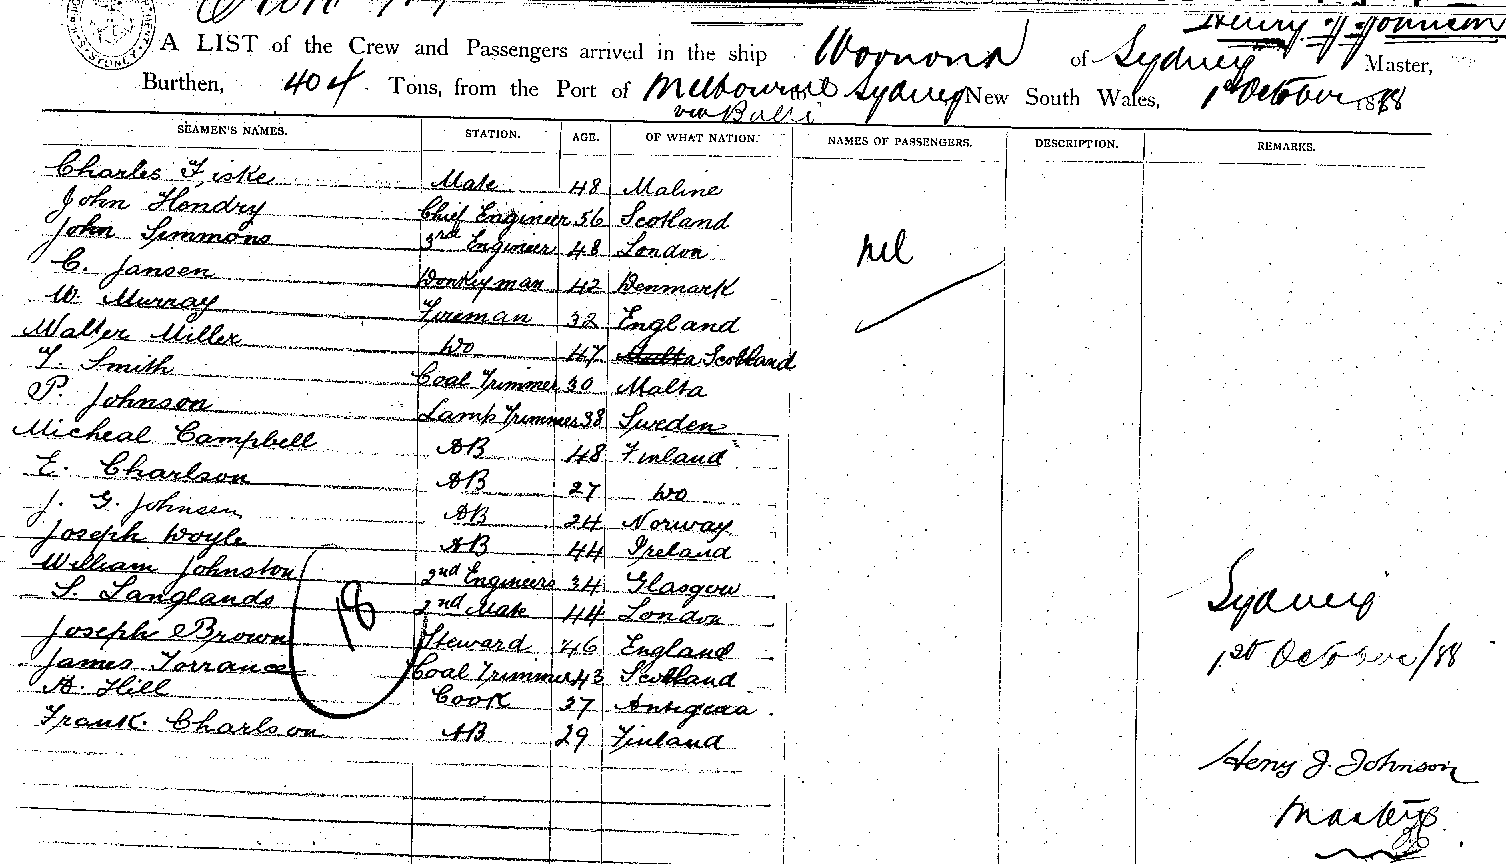 Henry J Johnson
A LIST of the Crew and Passengers arrived in the ship Woonona of Sydney Master,
Burthen, 404 Tons, from the Port of Melbourne to Sydney New South Wales, 1st October 1888
via Bulli
SEAMEN'S NAMES. STATION. AGE. OF WHAT NATION. NAMES OF PASSENGERS. DESCRIPTION. REMARKS.
Charles Fiske Mate 48 Maline
John Hendry Chief Engineer 56 Scotland
John Simmons 3rd Engineer 48 London
nil
C. Jansen Donkeyman 42 Denmark
W. Murray Fireman 32 England
Walter Miller Do 47 Malta Scotland
F. Smith Coal Trimmer 30 Malta
P. Johnson Lamp Trimmer 38 Sweden
Micheal Campbell AB 48 Finland
E. Charlson AB 27 Do
J. G. Johnsen AB 24 Norway
Joseph Doyle AB 44 Ireland
William Johnston 2nd Engineers 34 Glasgow
S. Langlands 2nd Mate 44 London
18
Sydney
Joseph Brown Steward 46 England
1st October/88
James Torrance Coal Trimmer 43 Scotland
A. Hill Cook 27 Antigua
Frank Charlson AB 29 Finland
Henry J. Johnson
Master